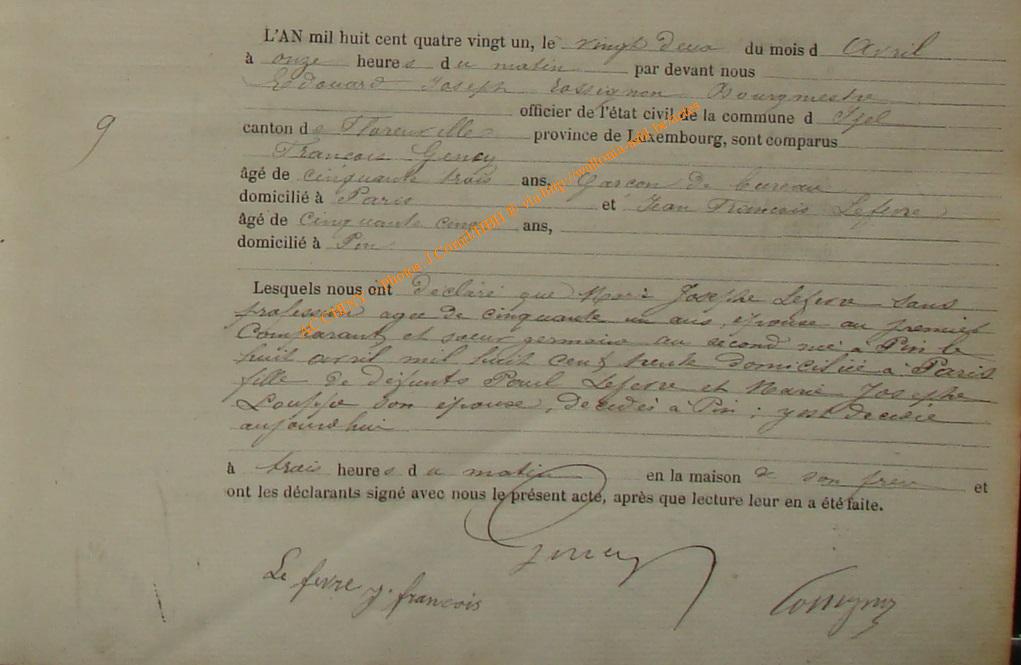 L'AN mil huit cent quatre vingt un, le vingt deux du mois d Avril
à onze heures du matin par devant nous
Edouard Joseph Rossignon Bourgmestre
officier de l'état civil de la commune d Izel
9
canton de Florenville province de Luxembourg, sont comparus
François Gency
âgé de cinquante trois ans, Garçon de bureau
domicilié à Paris et Jean François Lefevre
âgé de cinquante cinq ans,
domicilié à Pin
Lesquels nous ont déclaré que Marie Josephe Lefevre sans
profession agée de cinquante un ans, épouse au premier
Comparant et sœur germaine au second née à Pin le
huit avril mil huit cent trente domiciliée à Paris
fille de défunts Paul Lefevre et Marie Josephe
Louppe son épouse, décédés à Pin ; y est décédée
aujourd'hui
à trois heures du matin en la maison de son frère et
ont les déclarants signé avec nous le présent acte, après que lecture leur en a été faite.
Gency
Lefevre j. françois
Rossignon